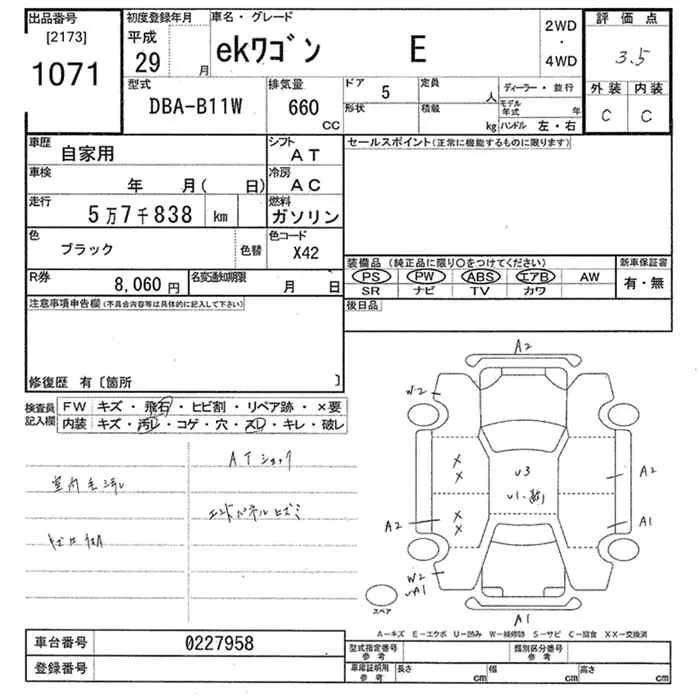 出品番号
[2173]
1071
初度登録年月
平成
29 月
車名・グレード
ekワゴン E
2WD
・
4WD
評価点
3.5
外装 内装
C C
型式
DBA-B11W
排気量
660
CC
ドア 5
定員
人
形状
積載
kg
ディーラー・並行
モデル年式 年
ハンドル 左・右
車歴
自家用
シフト
AT
車検
年 月( 日)
冷房
AC
走行
5万7千838 km
燃料
ガソリン
色
ブラック
色替
色コード
X42
R券
8,060円
名変通知期限
月 日
セールスポイント(正常に機能するものに限ります)
装備品 (純正品に限り○をつけてください)
PS PW ABS エアB AW
SR ナビ TV カワ
新車保証書
有・無
後日品
注意事項申告欄(不具合内容等は具体的に記入して下さい)
修復歴 有〔箇所 〕
検査員
記入欄
FW キズ・飛石・ヒビ割・リペア跡・×要
内装 キズ・汚レ・コゲ・穴・スレ・キレ・破レ
ATショック
エンドパネルヒズミ
A2
W2
U3
A2
A2
A1
W2
A1
スペア
A1
A-キズ E-エクボ U-凹み W-補修跡 S-サビ C-腐食 XX-交換済
車台番号
0227958
登録番号
型式指定番号
参考
類別区分番号
参考
車庫証明用
参考
長さ cm
幅 cm
高さ cm